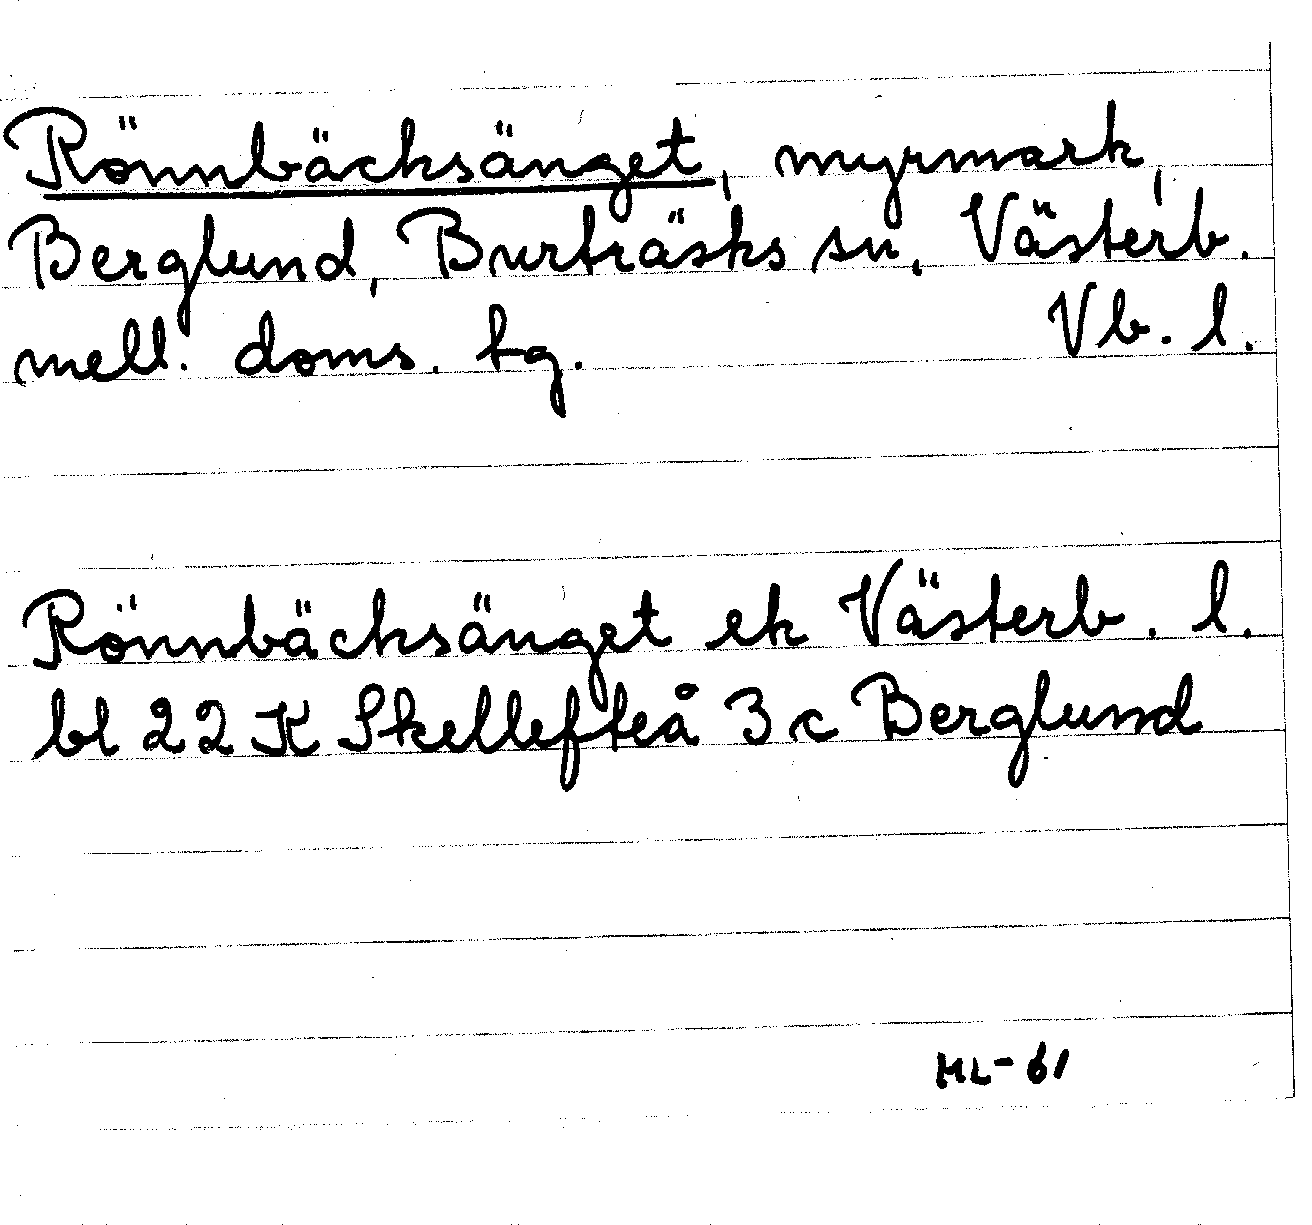 Rönnbäcksänget, myrmark,
Berglund, Burträsks sn, Västerb.
mell. doms. tg. Vb. l.
Rönnbäcksänget ek Västerb. l.
bl 22 K Skellefteå 3 c Berglund
HL-61